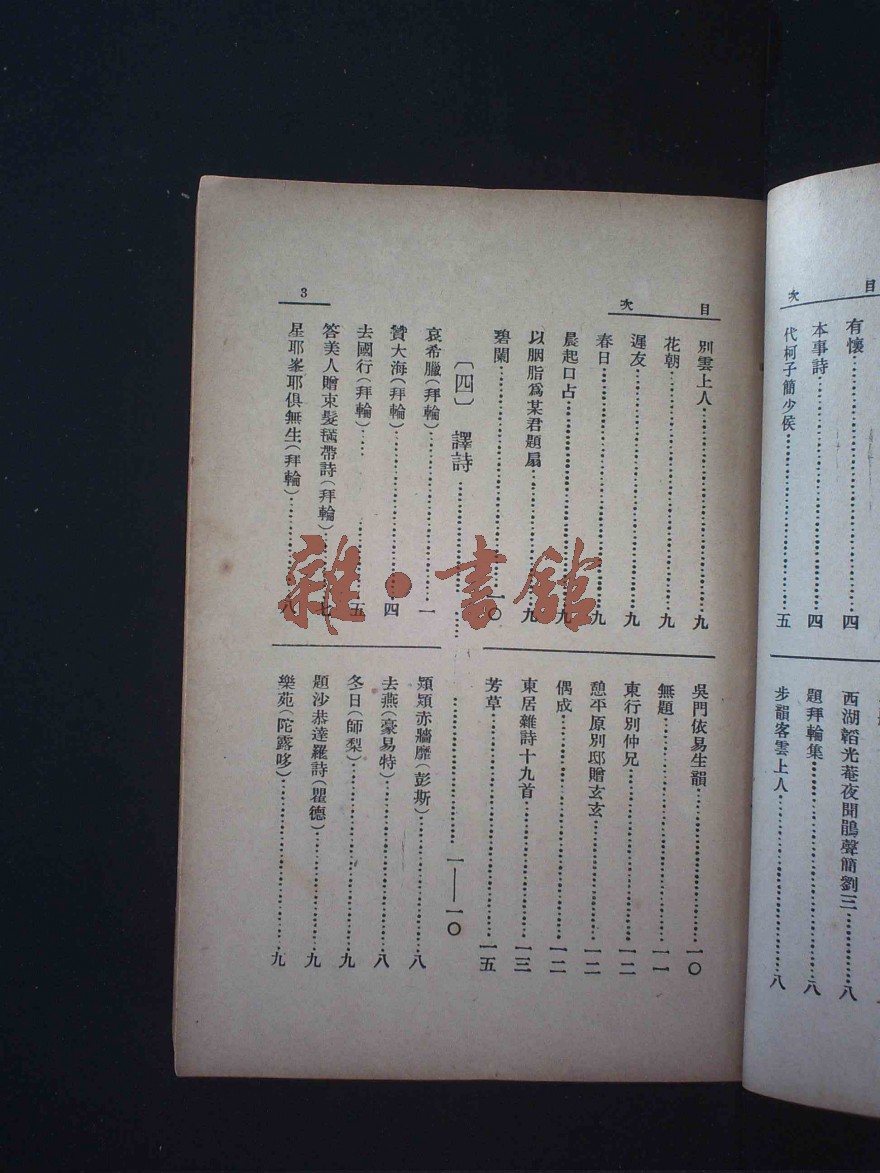 目次
有懷 四
本事詩 四
代柯子簡少侯 五
西湖韜光菴夜聞鵑聲簡劉三 八
題拜輪集 八
步韻客雲上人 八
目次
別雲上人 九
花朝 九
遲友 九
春日 九
晨起口占 九
以胭脂爲某君題扇 九
碧闌 一〇
吳門依易生韻 一〇
無題 一一
東行別仲兄 一二
憩平原別邸贈玄玄 一二
偶成 一二
東居雜詩十九首 一三
芳草 一五
〔四〕 譯詩 一——一〇
哀希臘(拜輪) 一
贊大海(拜輪) 四
去國行(拜輪) 五
答美人贈束髮𣰽帶詩(拜輪) 七
星耶峯耶俱無生(拜輪) 八
熲熲赤牆靡(彭斯) 八
去燕(豪易特) 八
冬日(師梨) 九
題沙恭達羅詩(瞿德) 九
樂苑(陀露哆) 九
3
雜·書館